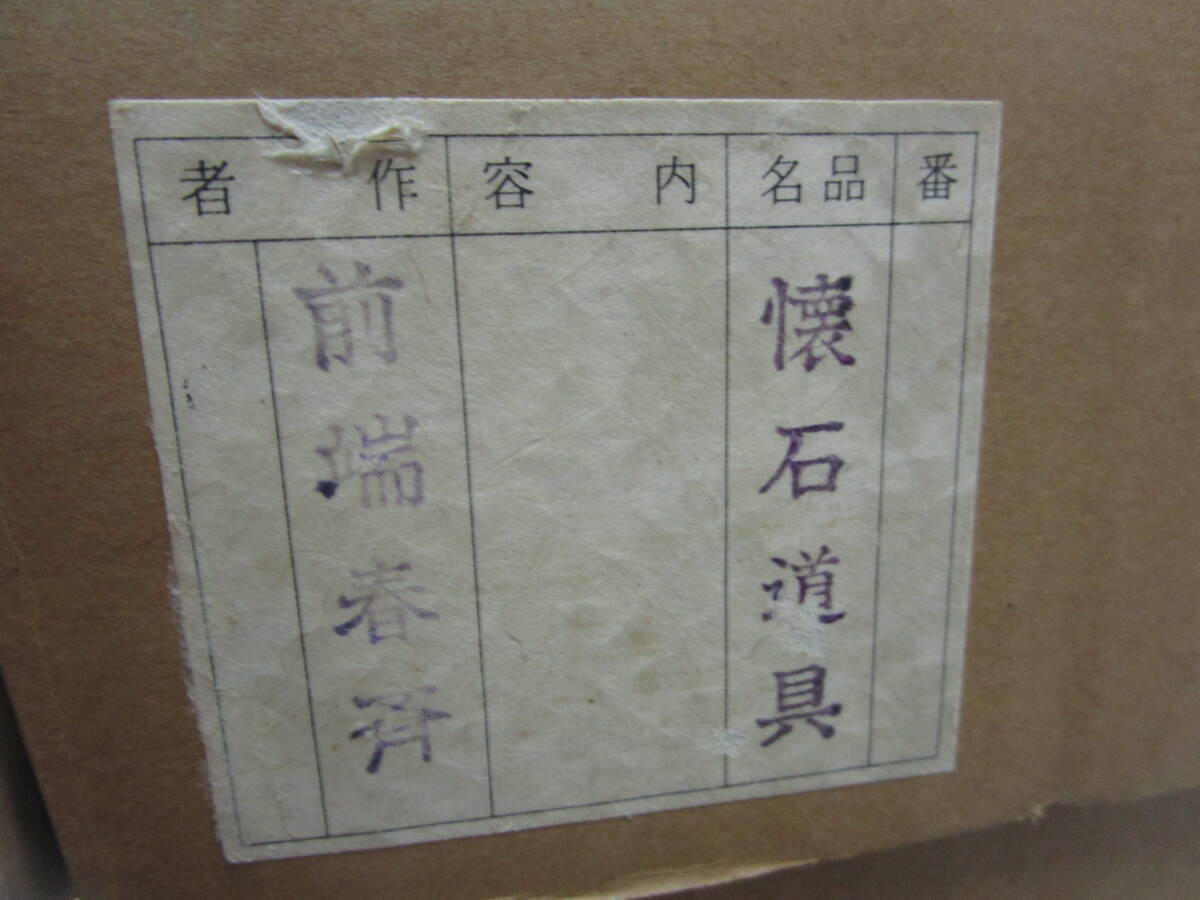 番
品名
内容
作者
懐石道具
前端春斉